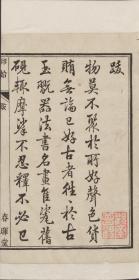 跋
物莫不聚於所好聲色貨
賄無論已好古者往往於古
玉器法書名畫舊
硯輙摩挲不忍釋不必己
跋
春暉堂